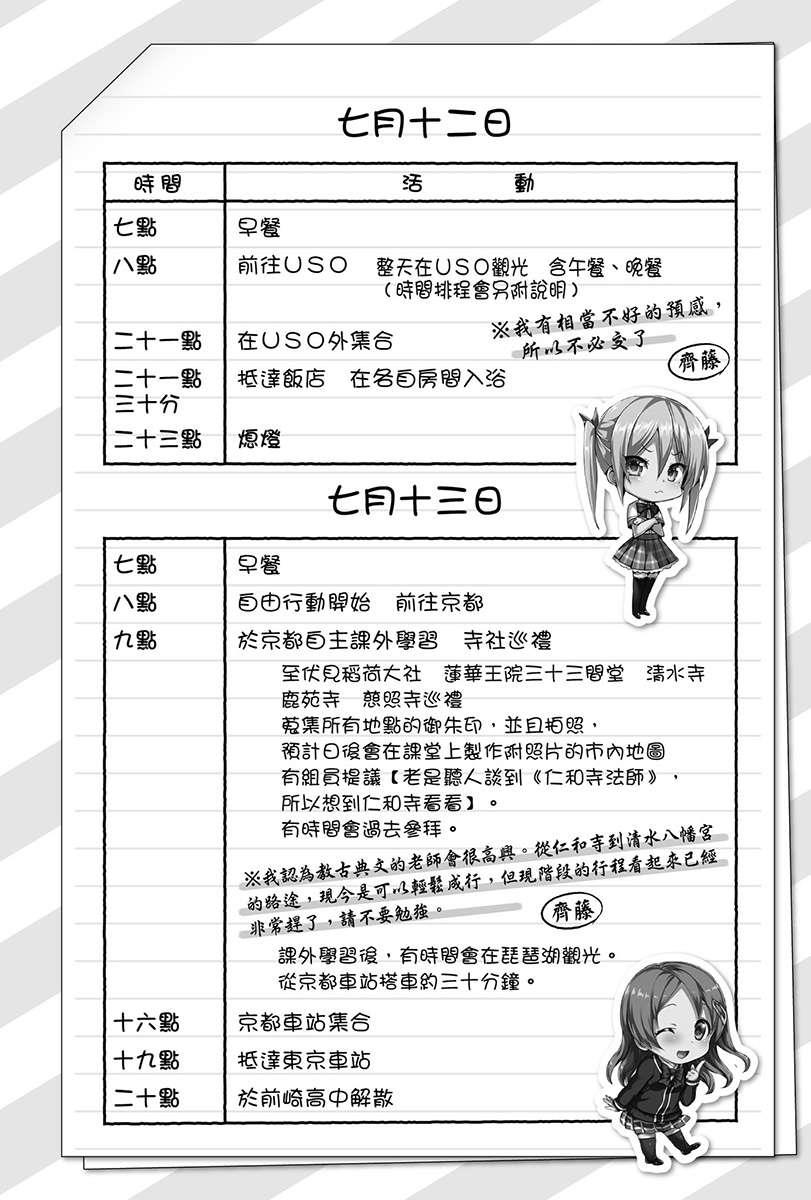 七月十二日
時間 活動
七點 早餐
八點 前往USO 整天在USO觀光 含午餐、晚餐
（時間排程會另附說明）
※我有相當不好的預感，
所以不必交了
齊藤
二十一點 在USO外集合
二十一點 抵達飯店 在各自房間入浴
三十分
二十三點 熄燈
七月十三日
七點 早餐
八點 自由行動開始 前往京都
九點 於京都自主課外學習 寺社巡禮
至伏見稻荷大社 蓮華王院三十三間堂 清水寺
鹿苑寺 慈照寺巡禮
蒐集所有地點的御朱印，並且拍照，
預計日後會在課堂上製作附照片的市內地圖
有組員提議【老是聽人談到《仁和寺法師》，
所以想到仁和寺看看】。
有時間會過去參拜。
※我認為教古典文的老師會很高興。從仁和寺到清水八幡宮
的路途，現今是可以輕鬆成行，但現階段的行程看起來已經
非常趕了，請不要勉強。
齊藤
課外學習後，有時間會在琵琶湖觀光。
從京都車站搭車約三十分鐘。
十六點 京都車站集合
十九點 抵達東京車站
二十點 於前崎高中解散